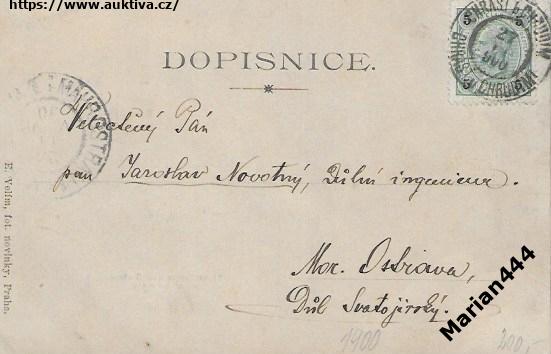 https://www.auktiva.cz/
DOPISNICE.
Veletěčný Pán
pan Jaroslav Novotný, Důlní ingenieur.
Mor. Ostrava,
Důl Svatojirský.
E. Volím, fot. novinky, Praha.
1900
200,-
Marian444